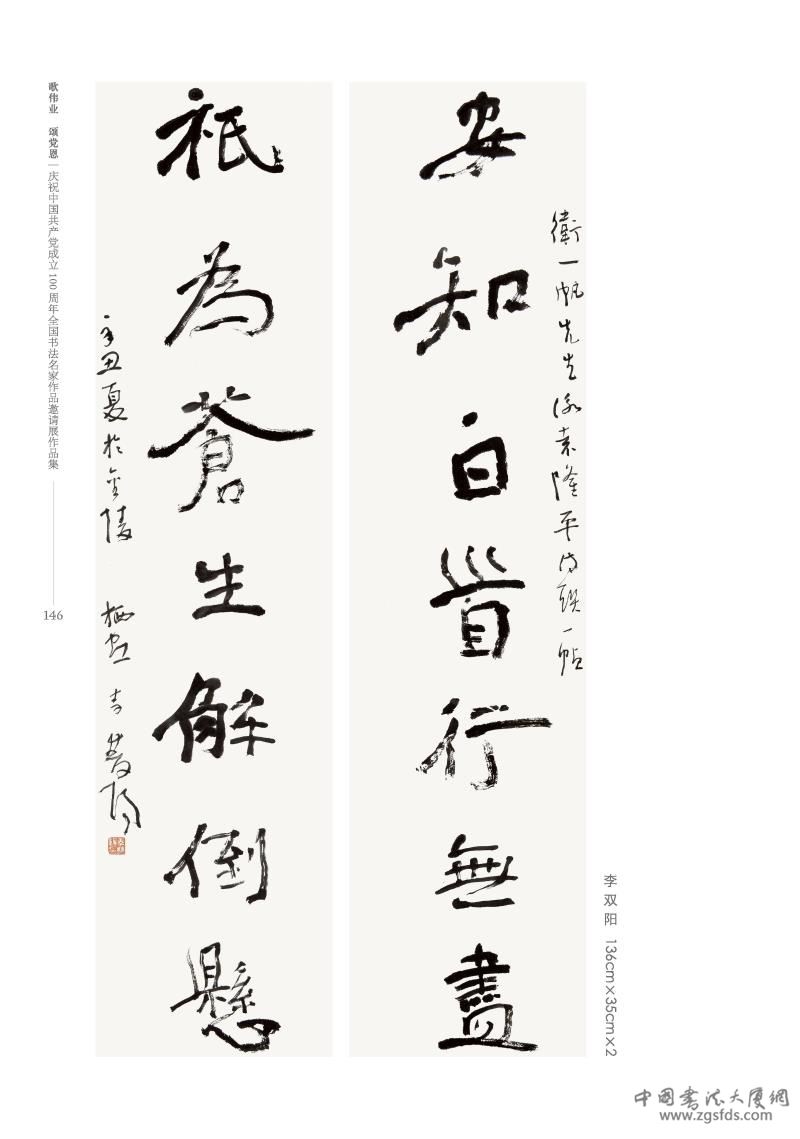 安知白首行無盡
衛一帆先生詠袁隆平詩聯一帖
祇為蒼生解倒懸
辛丑夏於金陵 栖霞 李雙陽
李双阳 136cm×35cm×2
歌伟业 颂党恩 | 庆祝中国共产党成立100周年全国书法名家作品邀请展作品集
146
中国书法大厦網
www.zgsfds.com